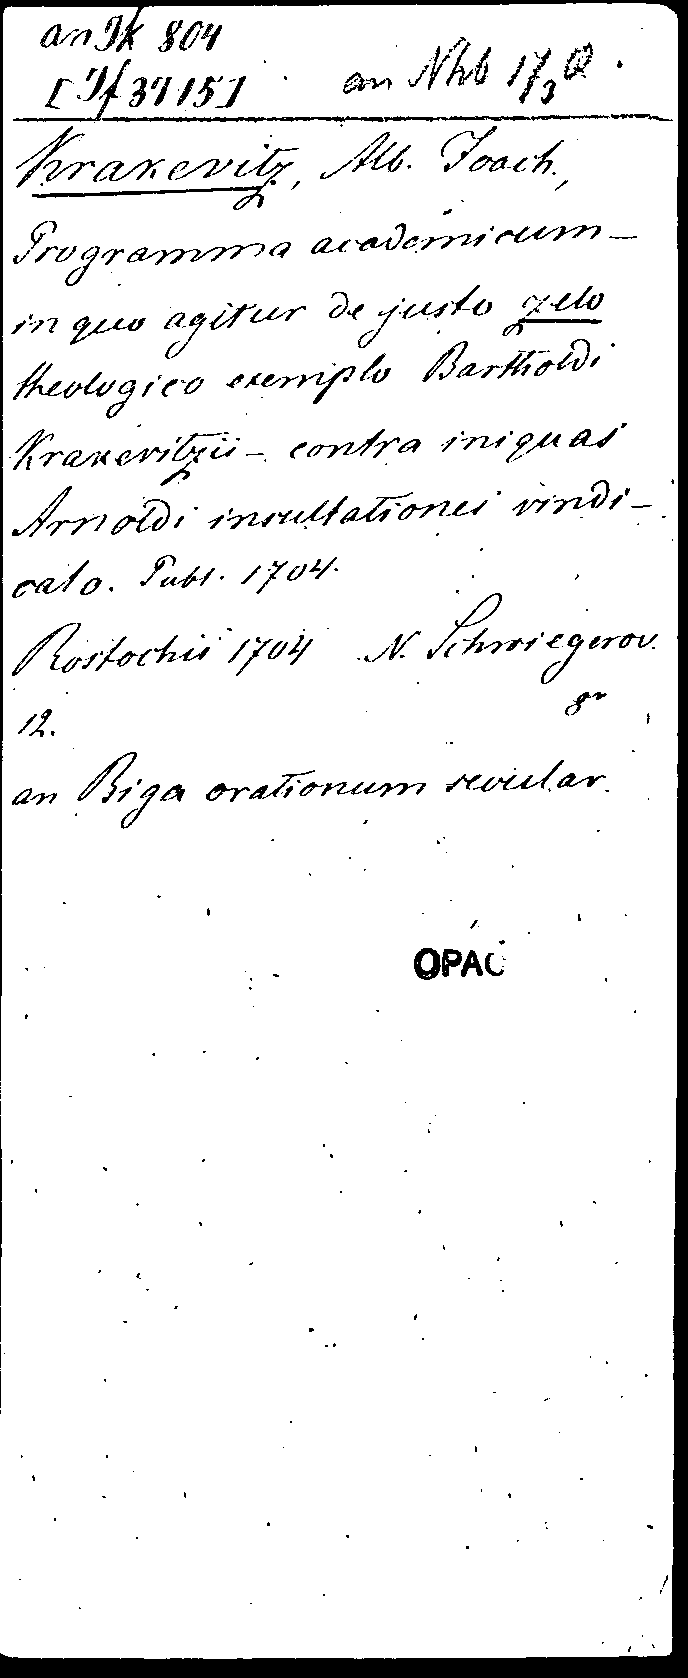 an Ik 804
[If 3715] an Nhb 17/3 Q.
Krakevitz, Alb. Joach.,
Programma academicum –
in quo agitur de justo zelo
theologico exemplo Bartholdi
Krakevitzii – contra iniquas
Arnoldi insultationes vindi-
cato. Publ. 1704.
Rostochii 1704 N. Schwiegerov.
12. 8°
an Biga orationum secular.
OPAC